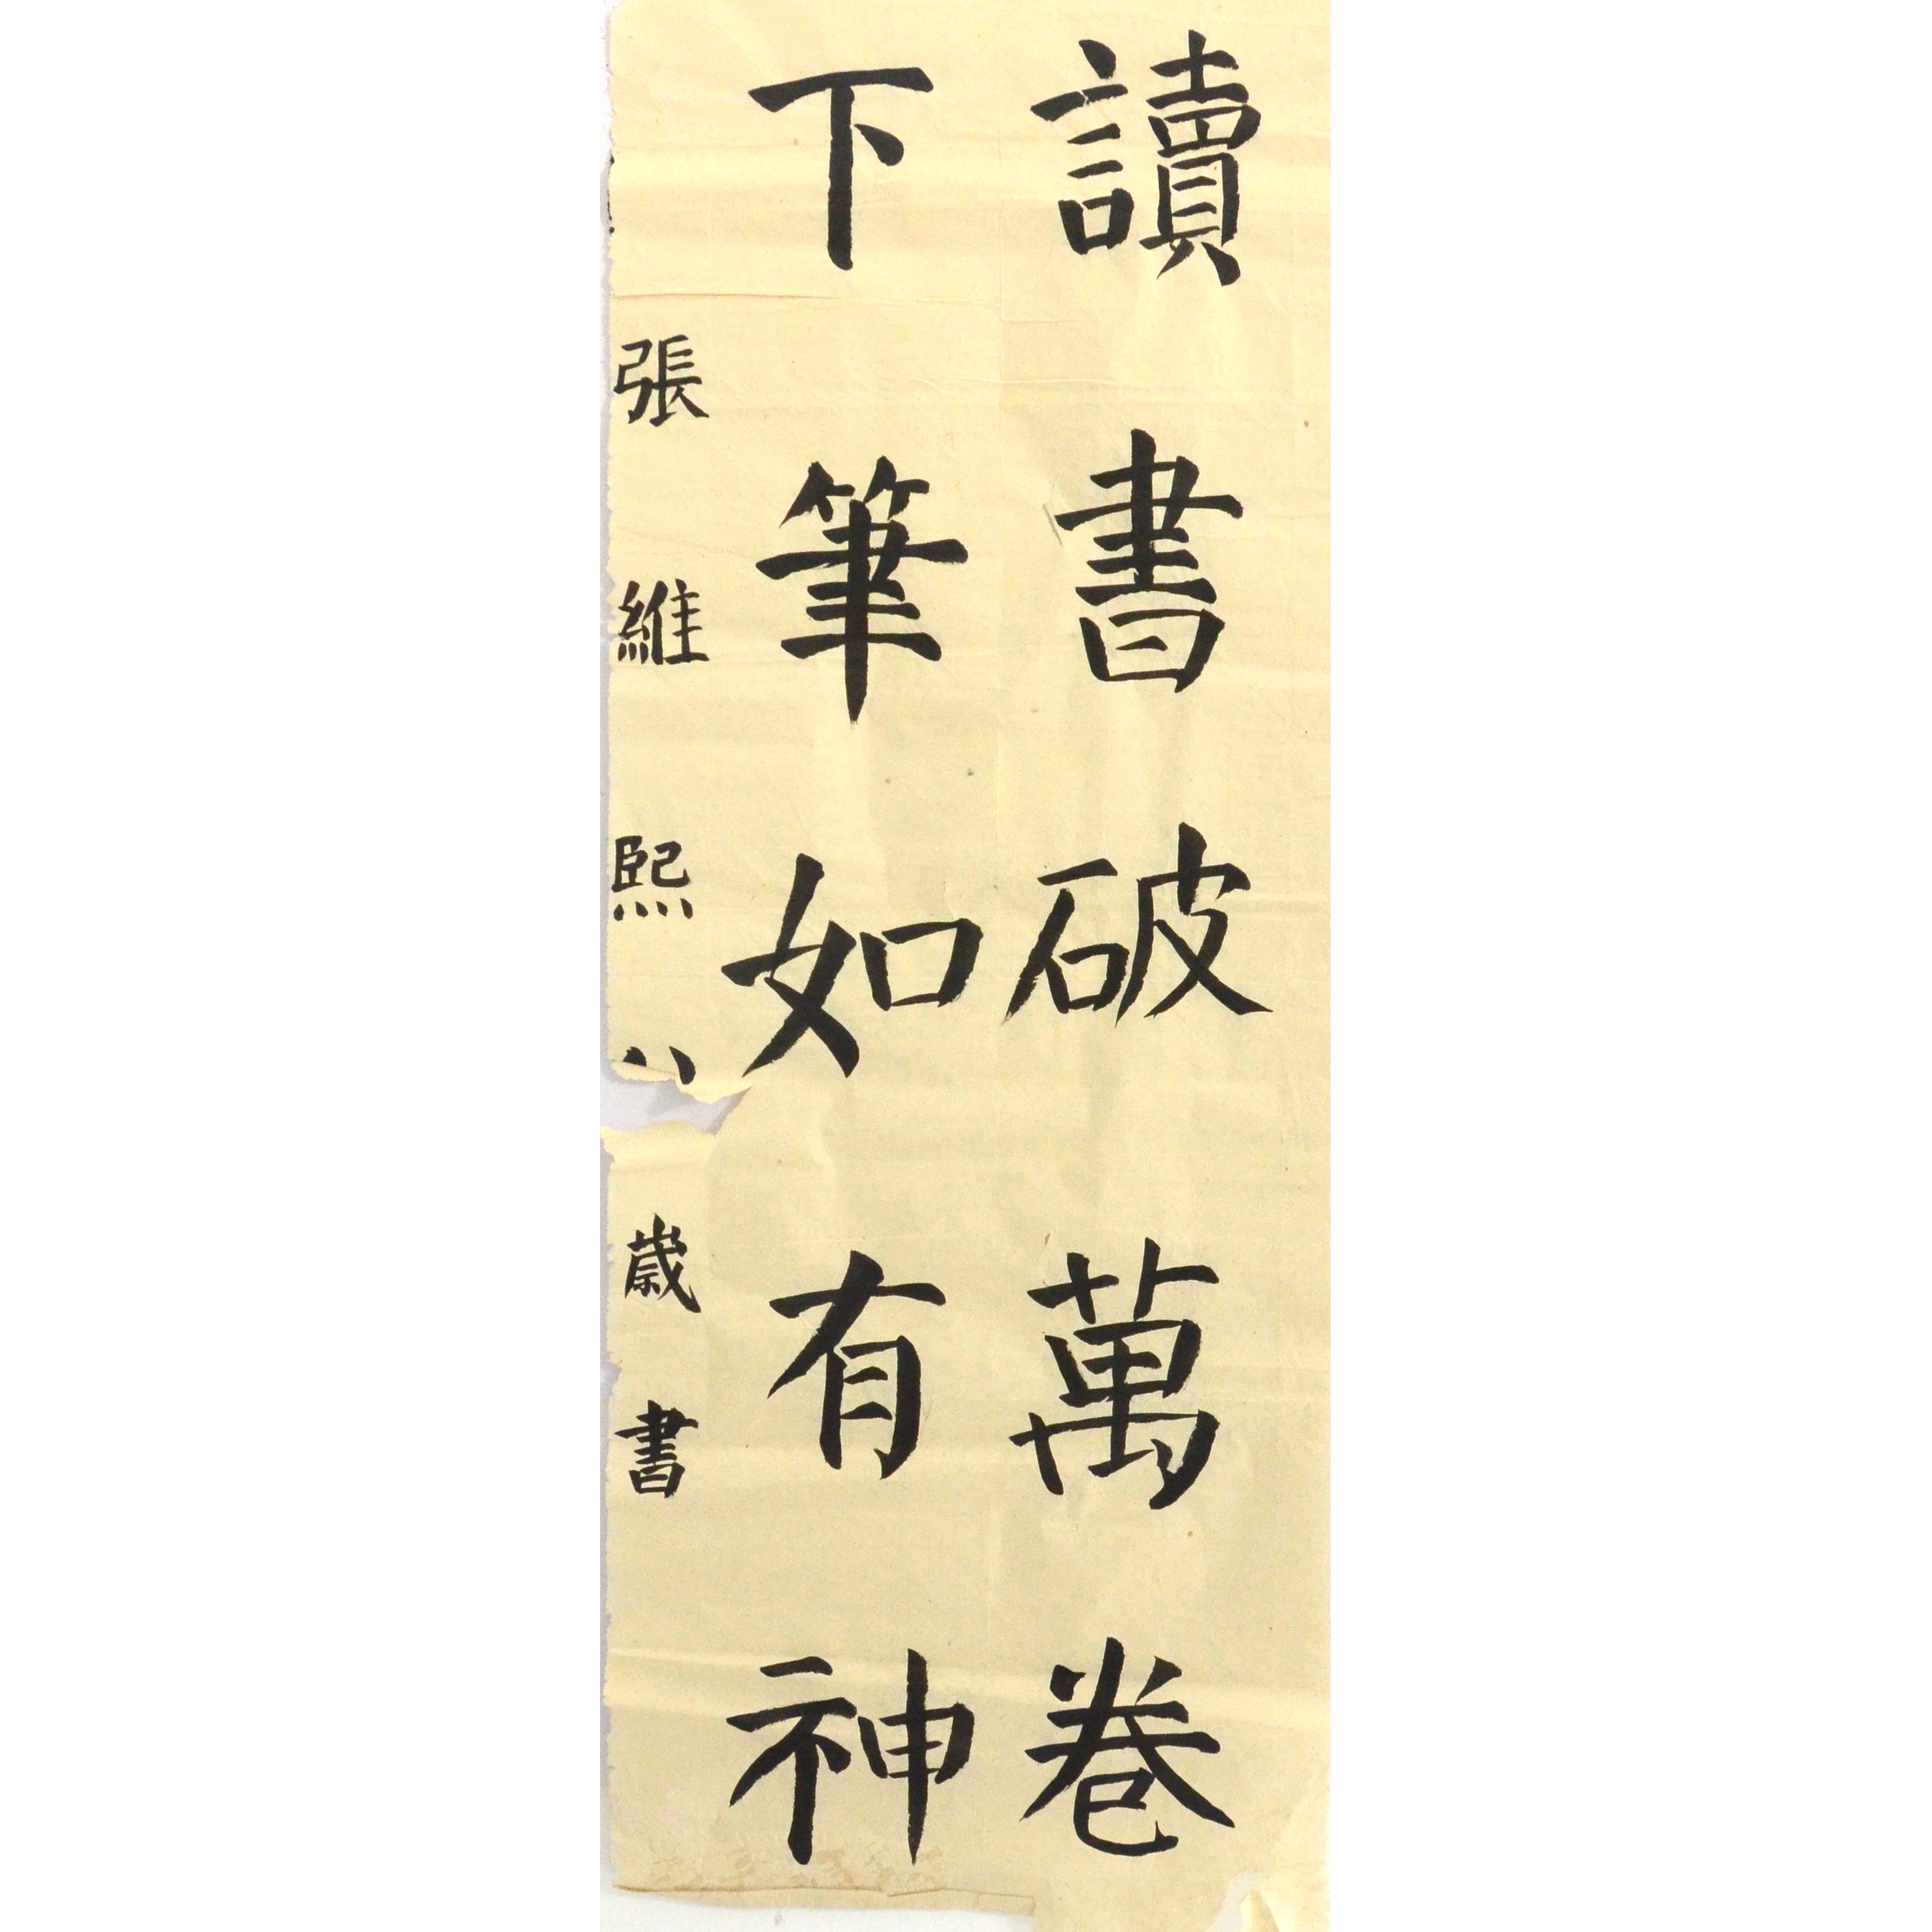 讀書破萬卷
下筆如有神
張維熙八歲書